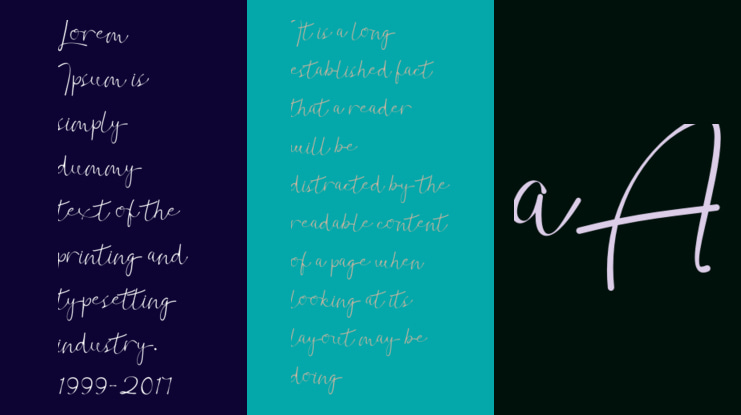 Lorem
Ipsum is
simply
dummy
text of the
printing and
typesetting
industry.
1999-2017
It is a long
established fact
that a reader
will be
distracted by the
readable content
of a page when
looking at its
layout may be
doing
a A